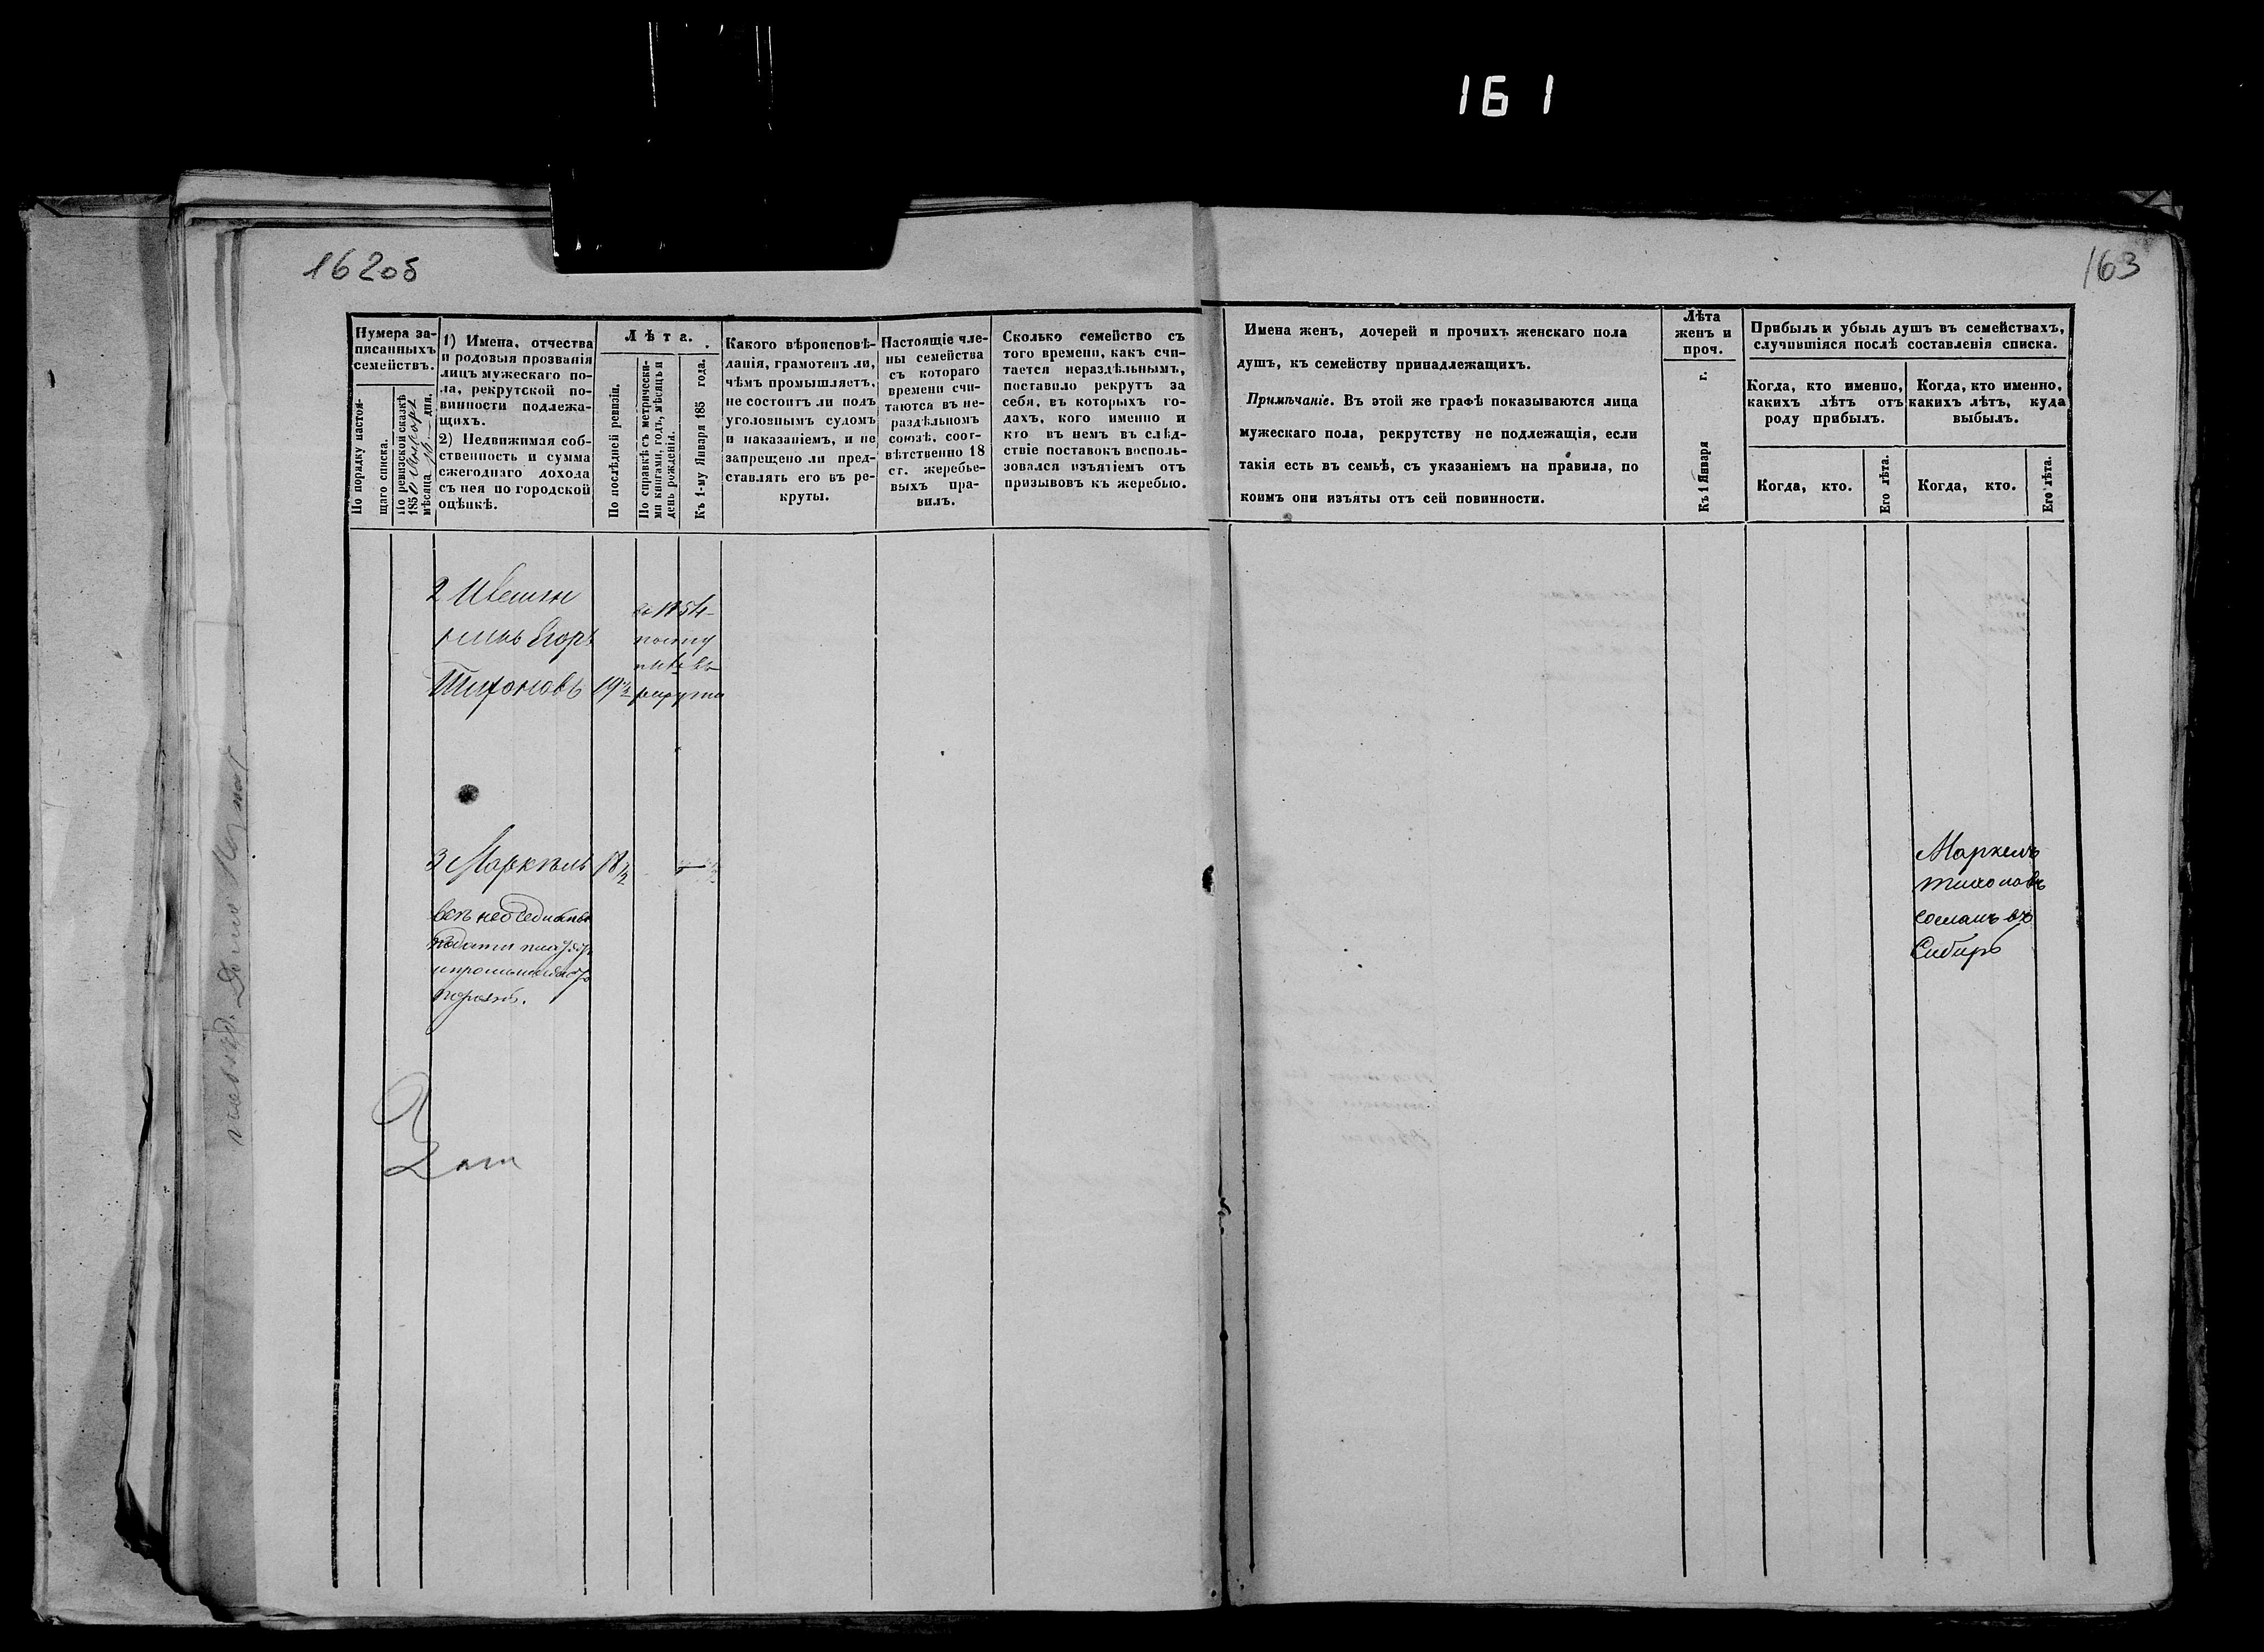 161
162об
163
Нумера за-
писанныхъ
семействъ.
По порядку настоя-
щаго списка.
По ревизской сказкѣ
185
мѣсяца дня.
1) Имена, отчества
и родовыя прозванія
лицъ мужескаго по-
ла, рекрутской по-
винности подлежа-
щихъ.
2) Недвижимая соб-
ственность и сумма
ежегоднаго дохода
съ нея по городской
оцѣнкѣ.
Лѣта.
По послѣдней ревизіи.
По справкѣ съ метрически-
ми книгами, годъ, мѣсяцъ и
день рожденія.
Къ 1-му Января 185 года.
Какого вѣроисповѣ-
данія, грамотенъ ли,
чѣмъ промышляетъ,
не состоитъ ли подъ
уголовнымъ судомъ
и наказаніемъ, и не
запрещено ли пред-
ставлять его въ ре-
круты.
Настоящіе чле-
ны семейства
съ котораго
времени счи-
таются въ не-
раздѣльномъ
союзѣ, соот-
вѣтственно 18
ст. жеребье-
выхъ пра-
вилъ.
Сколько семейство съ
того времени, какъ счи-
тается нераздѣльнымъ,
поставило рекрутъ за
себя, въ которыхъ го-
дахъ, кого именно и
кто въ немъ въ слѣд-
ствіе поставокъ восполь-
зовался изъятіемъ отъ
призывовъ къ жеребью.
Имена женъ, дочерей и прочихъ женскаго пола
душъ, къ семейству принадлежащихъ.
Примѣчаніе. Въ этой же графѣ показываются лица
мужескаго пола, рекрутству не подлежащія, если
такія есть въ семьѣ, съ указаніемъ на правила, по
коимъ они изъяты отъ сей повинности.
Лѣта
женъ и
проч.
Къ 1 Января г.
Прибыль и убыль душъ въ семействахъ,
случившіяся послѣ составленія списка.
Когда, кто именно,
какихъ лѣтъ отъ
роду прибылъ.
Когда, кто именно,
какихъ лѣтъ, куда
выбылъ.
Когда, кто.
Его лѣта.
Когда, кто.
Его лѣта.
2
Егоръ
Тихоновъ 19½
въ 1854
посту
пилъ въ
рекрута
3 Маркелъ 18½
Маркелъ
Тихоновъ
сосланъ въ
Сибирь